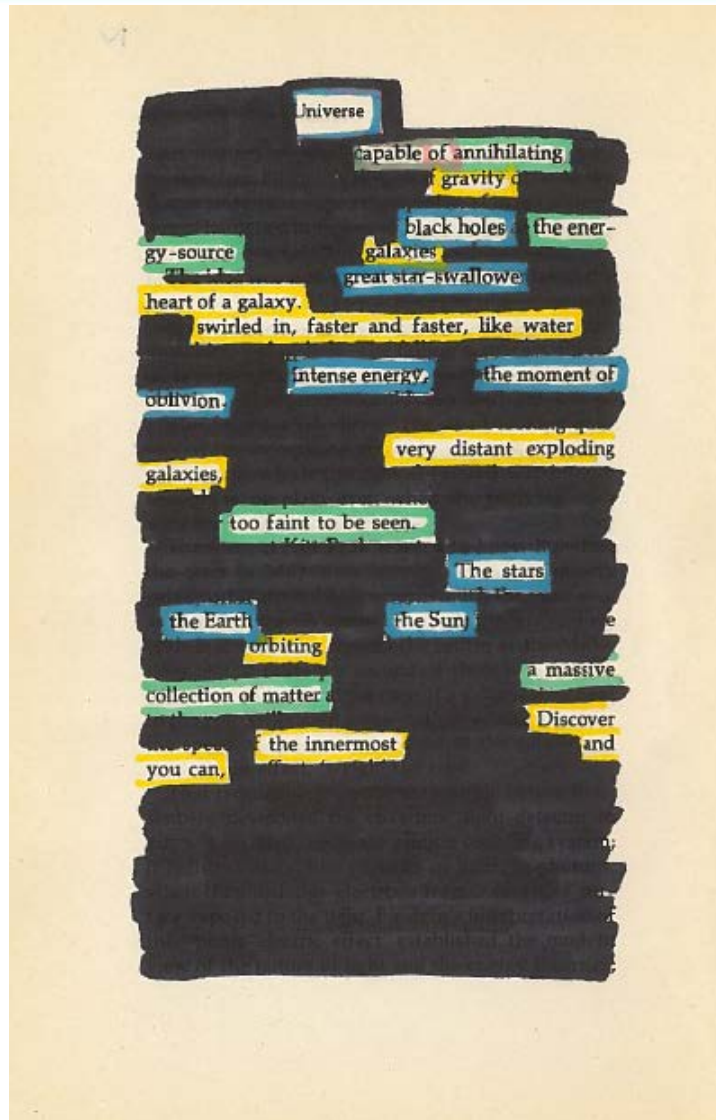 vi
Universe
capable of annihilating
gravity
black holes the ener-
gy-source galaxies
great star-swallowe
heart of a galaxy.
swirled in, faster and faster, like water
intense energy, the moment of
oblivion.
very distant exploding
galaxies,
too faint to be seen.
The stars
the Earth the Sun
orbiting
a massive
collection of matter
Discover
the innermost and
you can,